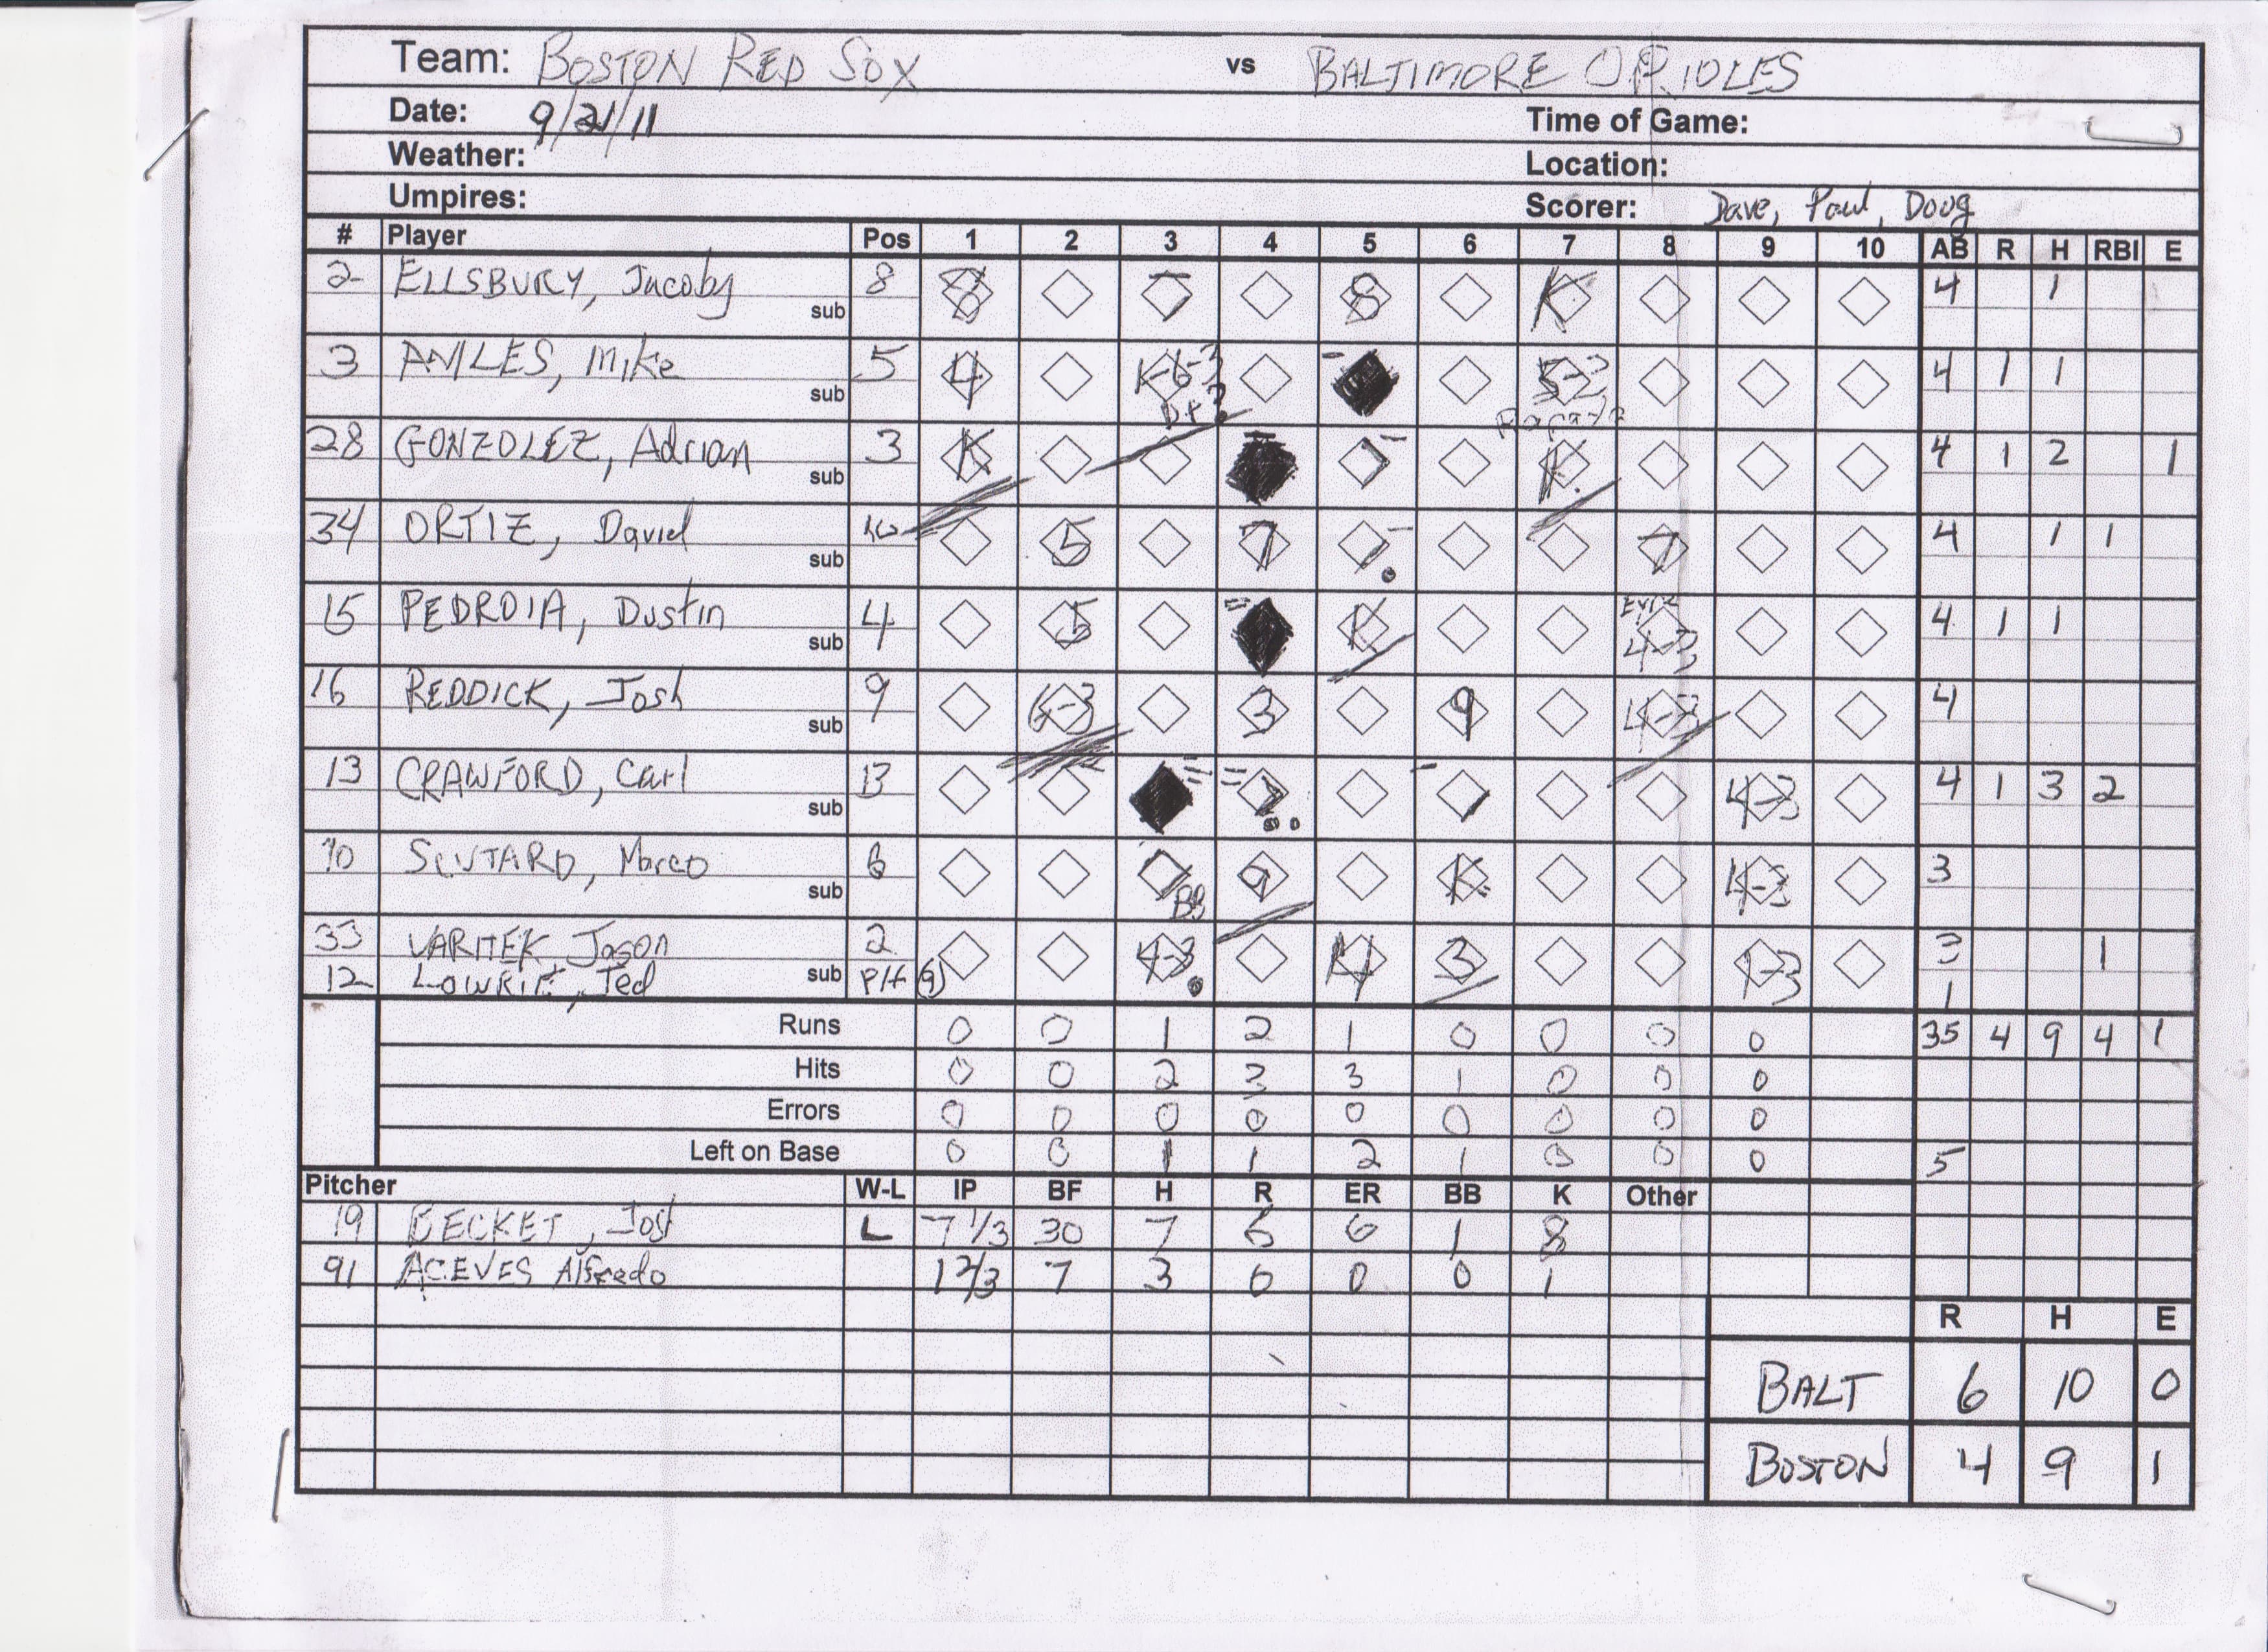 Team: BOSTON RED SOX vs BALTIMORE ORIOLES
Date: 9/21/11 Time of Game:
Weather: Location:
Umpires: Scorer: Dave, Paul, Doug
# Player Pos 1 2 3 4 5 6 7 8 9 10 AB R H RBI E
2 ELLSBURY, Jacoby 8 8 8 K 4 1
sub
3 AVILES, Mike 5 4 K-6-3 5-3 4 1 1
sub DP
28 GONZOLEZ, Adrian 3 K K 4 1 2 1
sub
34 ORTIZ, David 10 5 7 7 4 1 1
sub
15 PEDROIA, Dustin 4 5 K 4-3 4 1 1
sub
16 REDDICK, Josh 9 6-3 3 9 4-3 4
sub
13 CRAWFORD, Carl 13 4-3 4 1 3 2
sub
10 SCUTARO, Marco 6 9 K 4-3 3
sub BB
33 VARITEK, Jason 2 4-3 4 3 1-3 3 1
12 LOWRIE, Jed sub PH (9) 1
Runs 0 0 1 2 1 0 0 0 0 35 4 9 4 1
Hits 0 0 2 3 3 1 0 0 0
Errors 0 0 0 0 0 0 0 0 0
Left on Base 0 0 1 1 2 1 0 0 0 5
Pitcher W-L IP BF H R ER BB K Other
19 BECKET, Josh L 7 1/3 30 7 6 6 1 8
91 ACEVES Alfredo 1 2/3 7 3 0 0 0 1
R H E
BALT 6 10 0
BOSTON 4 9 1